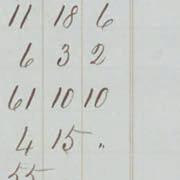 11 18 6
6 3 2
61 10 10
4 15 "
55